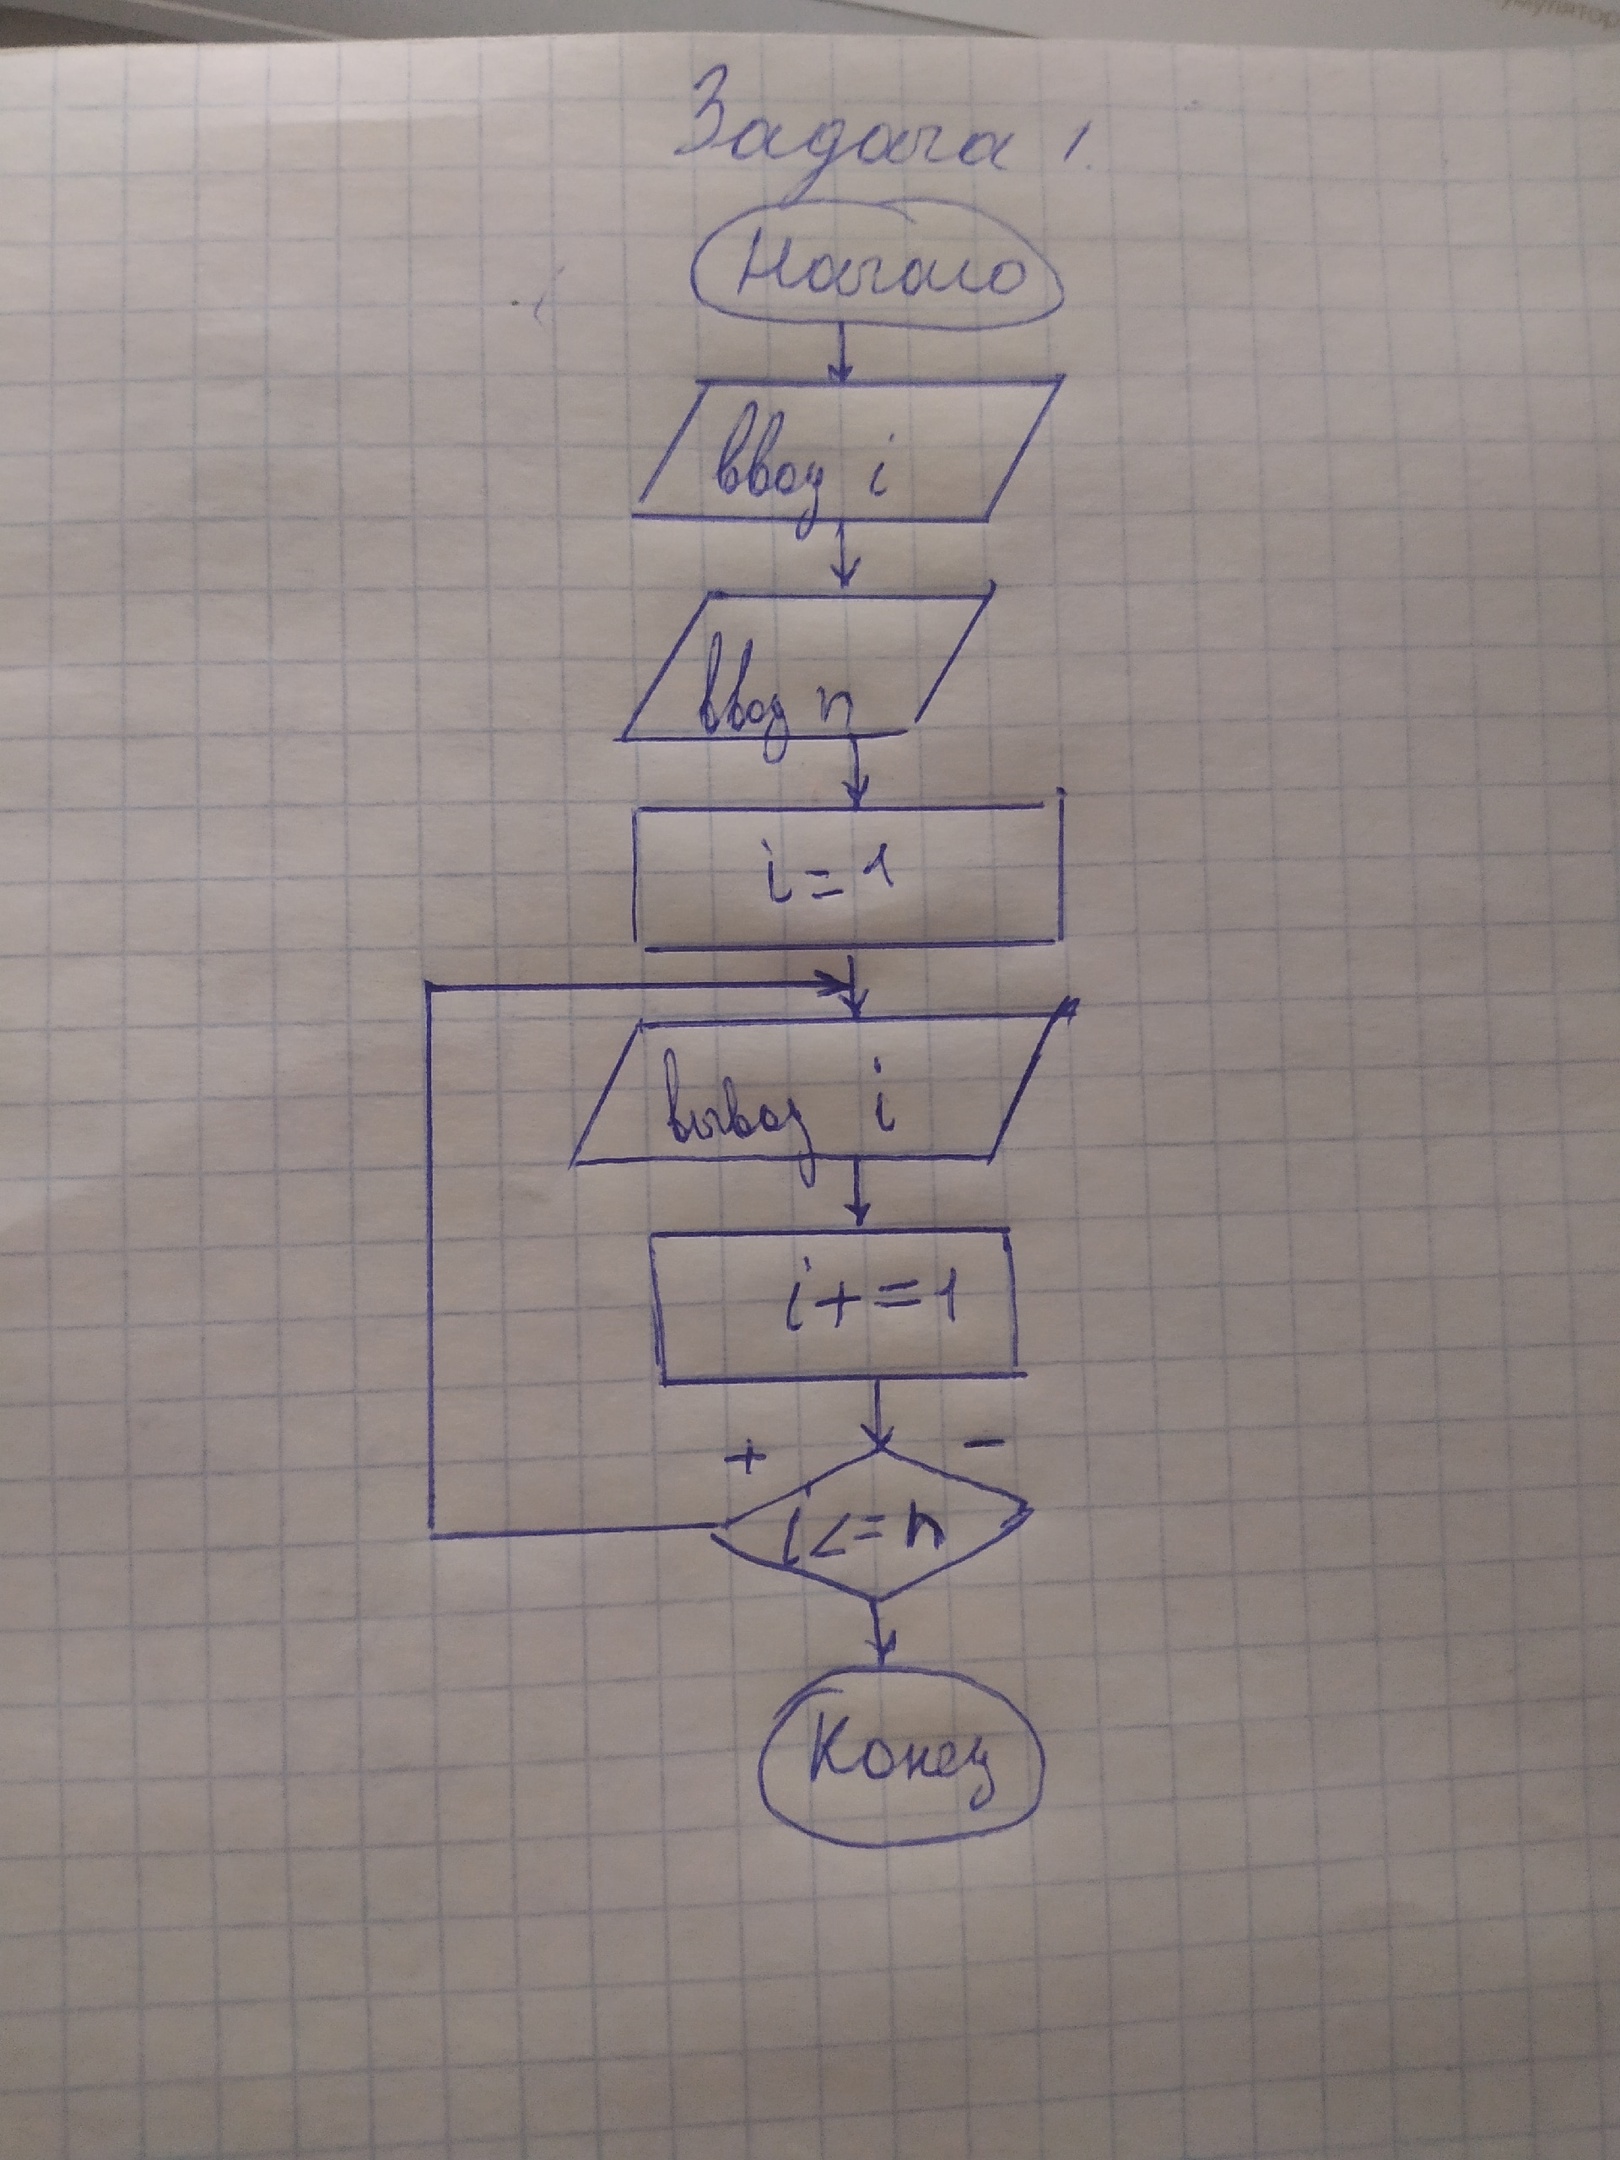 Задача 1.
Начало
ввод i
ввод n
i=1
вывод i
i+=1
+ -
i<=n
Конец